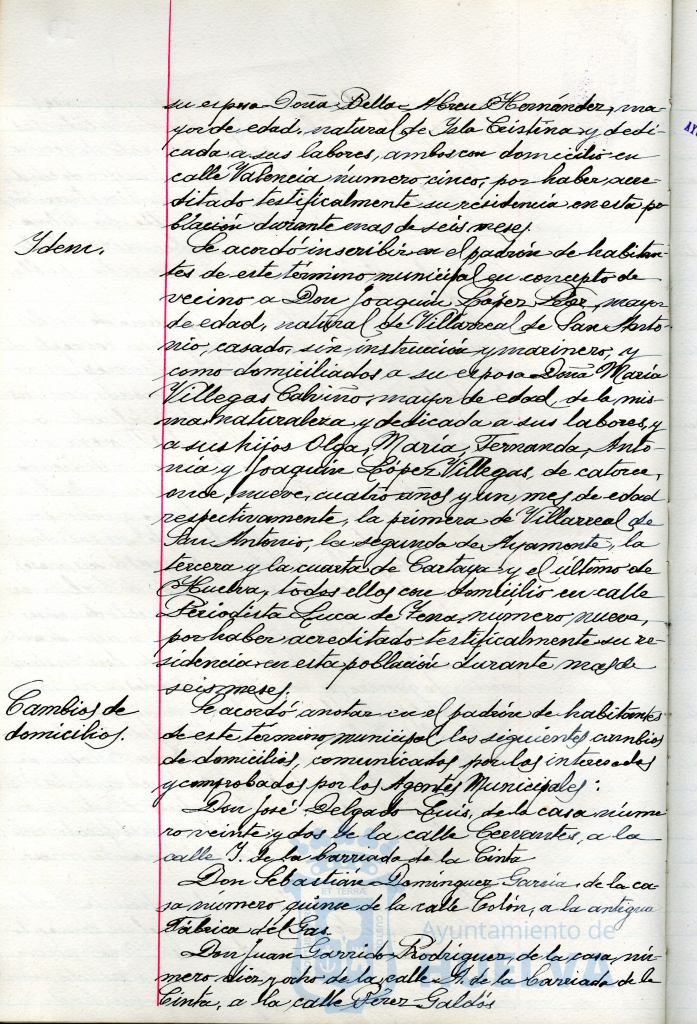 su esposa Doña Bella Abreu Hernández, ma-
yor de edad, natural de Isla Cristina y dedi-
cada a sus labores, ambos con domicilio en
calle Valencia número cinco, por haber acre-
ditado testificalmente su residencia en esta po-
blación durante mas de seis meses.
Idem.
Se acordó inscribir en el padrón de habitan-
tes de este término municipal en concepto de
vecino a Don Joaquín López, mayor
de edad, natural de Villarreal de San Anto-
nio, casado, sin instrucción y marinero, y
como domiciliados a su esposa Doña María
Villegas Calviño, mayor de edad, de la mis-
ma naturaleza y dedicada a sus labores, y
a sus hijos Olga, María, Fernanda, Anto-
nia y Joaquín López Villegas, de catorce,
once, nueve, cuatro años y un mes de edad
respectivamente, la primera de Villarreal de
San Antonio, la segunda de Ayamonte, la
tercera y la cuarta de Cartaya y el último de
Huelva, todos ellos con domicilio en calle
Periodista Luca de Tena, número nueve,
por haber acreditado testificalmente su re-
sidencia en esta población durante mas de
seis meses.
Cambios de
domicilios.
Se acordó anotar en el padrón de habitantes
de este término municipal los siguientes cambios
de domicilios, comunicados por los interesados
y comprobados por los Agentes Municipales:
Don José Delgado Luis, de la casa núme-
ro veinte y dos de la calle Cervantes, a la
calle J. de la barriada de la Cinta
Don Sebastián Domínguez García, de la ca-
sa numero quince de la calle Colón, a la antigua
Fábrica del Gas.
Don Juan Garrido Rodríguez, de la casa nú-
mero diez y ocho de la calle G. de la Barriada de la
Cinta, a la calle Pérez Galdós
Ayuntamiento de
HUELVA